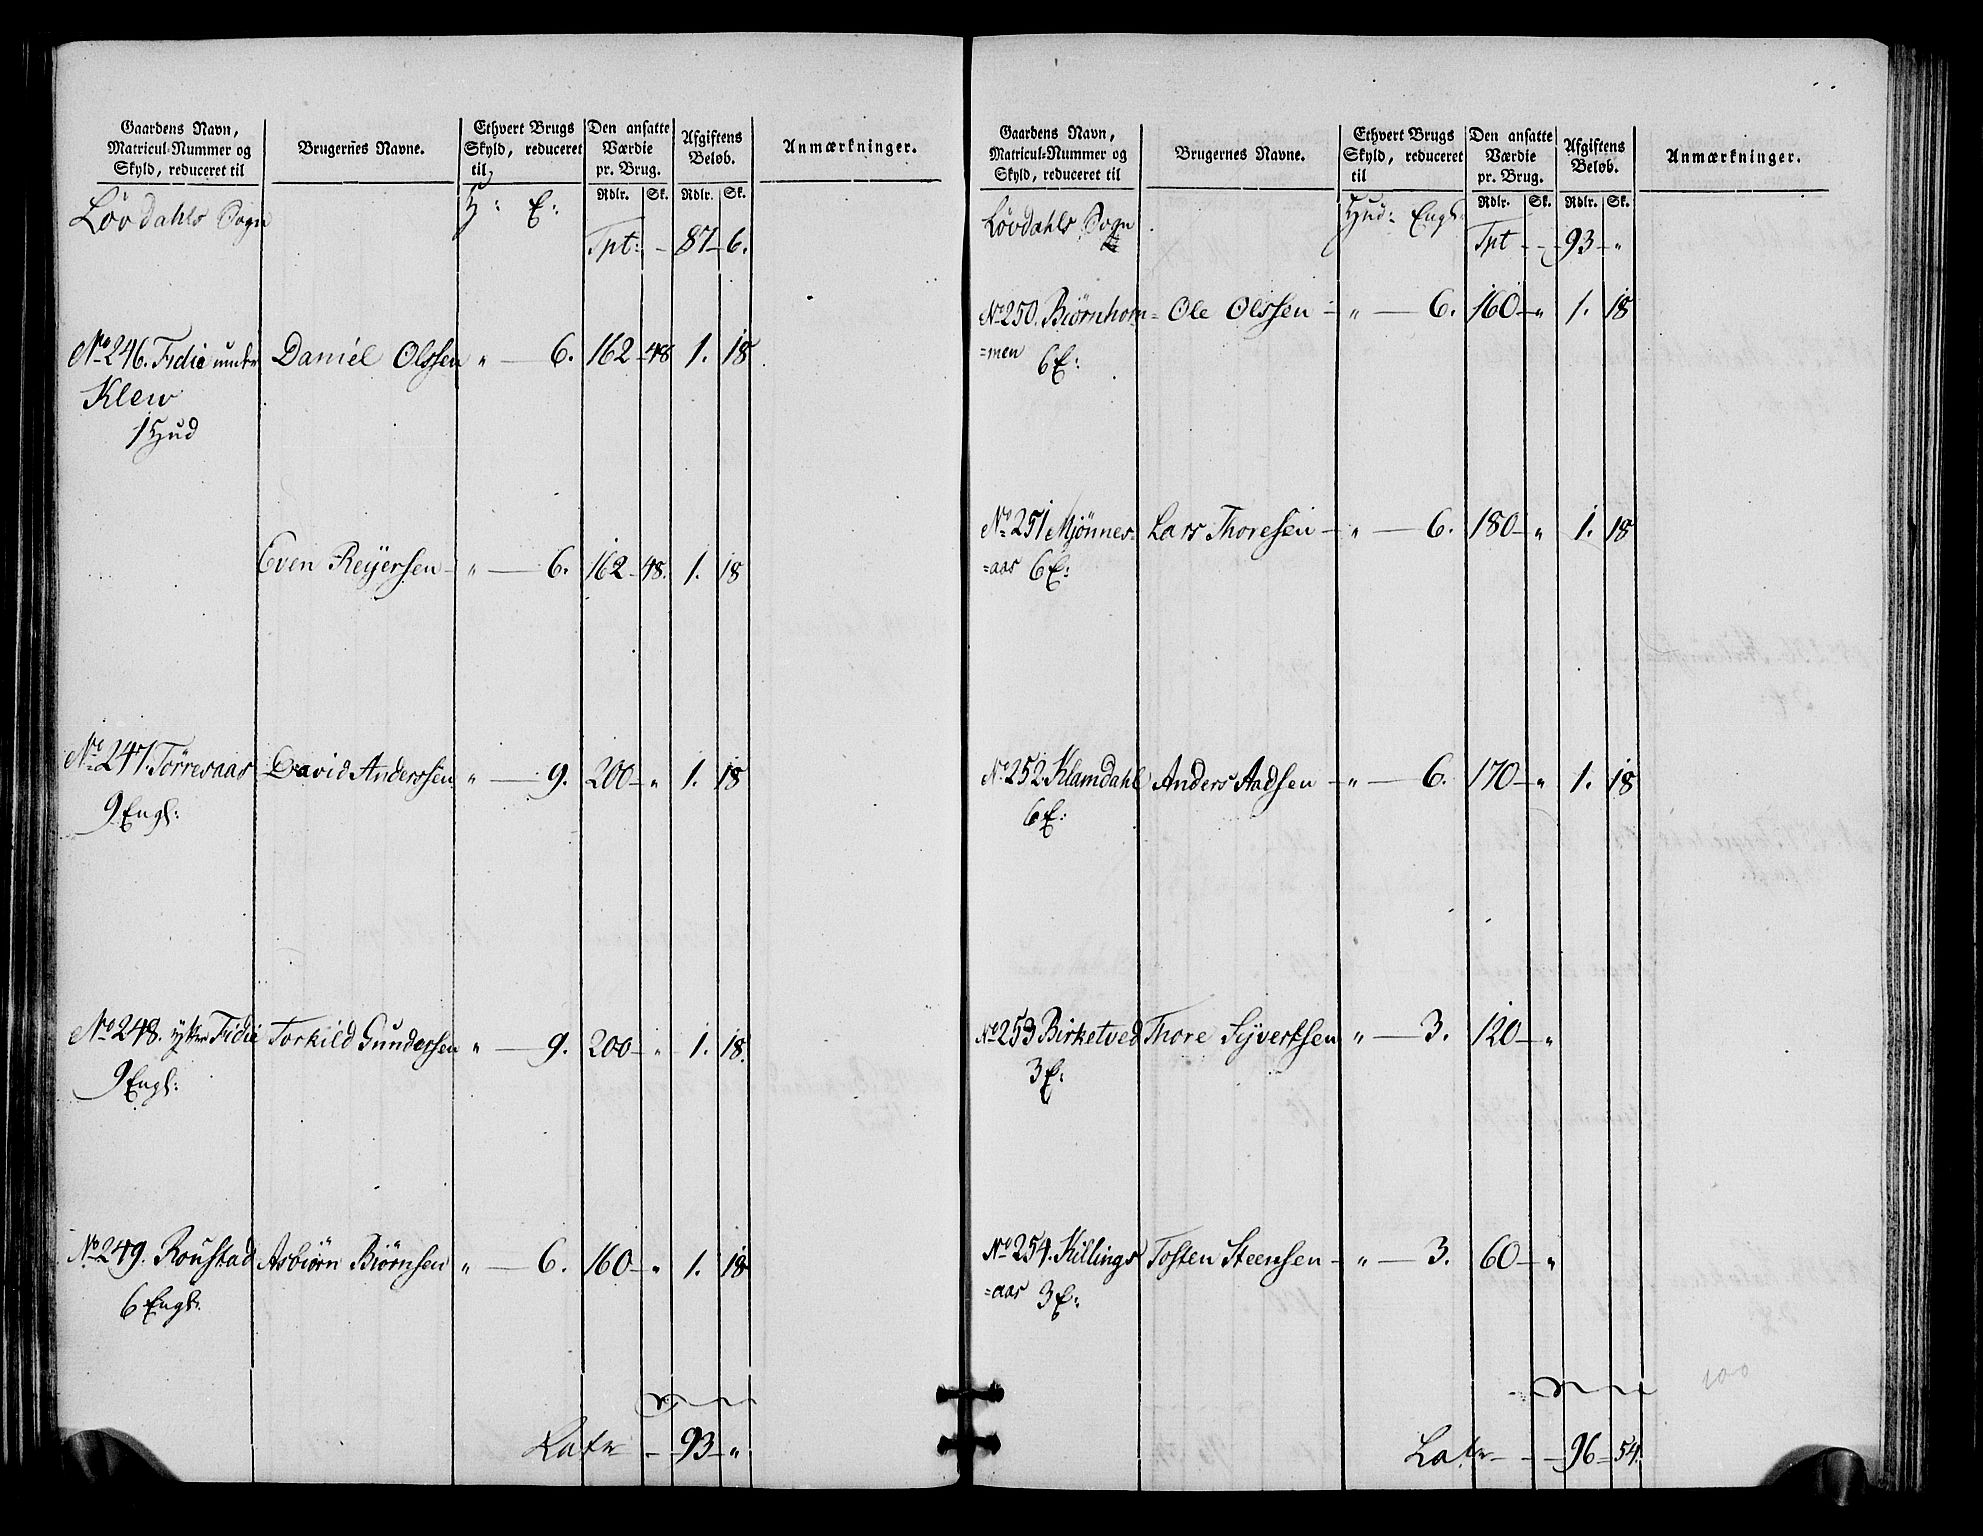 Gaardens Navn, Matricul-Nummer og Skyld, reduceret til | Brugernes Navne. | Ethvert Brugs Skyld, reduceret til | Den ansatte Værdie pr. Brug. | Afgiftens Beløb. | Anmærkninger.
Rdlr. Sk. Rdlr. Sk.
Lövdahls Sogn H: E:
Tpt: - 87 - 6.
No 246. Fidie under Daniel Olssen " - 6. 162 - 48 1. 18
Klew
1 Hud
Even Reijersen - " - 6. 162 - 48. 1. 18
No 247. Törresaas David Anderssen " - 9. 200 - " 1. 18
9 Engl:
No 248. ytter Fidie Torkild Gunderssen " - 9. 200 - " 1. 18.
9 Engl:
No 249. Roustad Asbiörn Biörnsen " - 6. 160 - " 1. 18
6 Engl:
Latr - 93 - "
Gaardens Navn, Matricul-Nummer og Skyld, reduceret til | Brugernes Navne. | Ethvert Brugs Skyld, reduceret til | Den ansatte Værdie pr. Brug. | Afgiftens Beløb. | Anmærkninger.
Rdlr. Sk. Rdlr. Sk.
Lövdahls Sogn Hud: Engl:
Tpt - - 93 - "
No 250. Biörnhom= Ole Olssen - " - 6. 160 - " 1. 18
=men 6 E:
No 251 Mjönnes= Lars Thoresen - " - 6. 180 - " 1. 18
=aas 6 E:
No 252 Klamdahl Anders Aadsen - " - 6. 170 - " 1. 18
6 E:
No 253 Birketved Thore Syvertsen " - 3. 120 - "
3 E:
No 254. Killings Tosten Steensen - " - 3. 60 - "
=aas 3 E:
100
Latr - - 96 - 54.